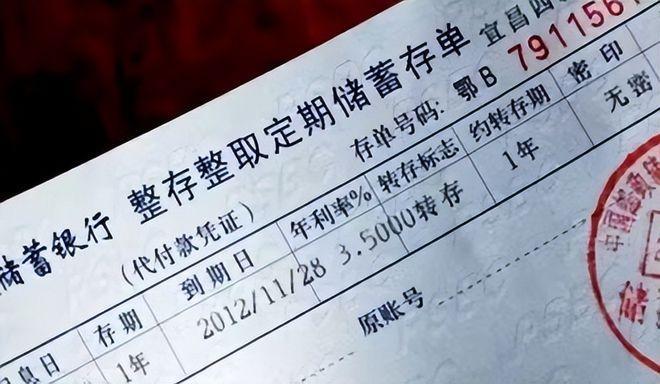 储蓄银行 整存整取定期储蓄存单 宜昌四
(代付款凭证) 存单号码: 鄂B 7911561
息日 存期 到期日 年利率% 转存标志 约转存期 密印
1年 2012/11/28 3.5000 转存 1年 无密
原账号
中国邮政储
储